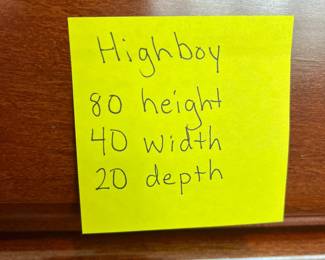 Highboy
80 height
40 width
20 depth